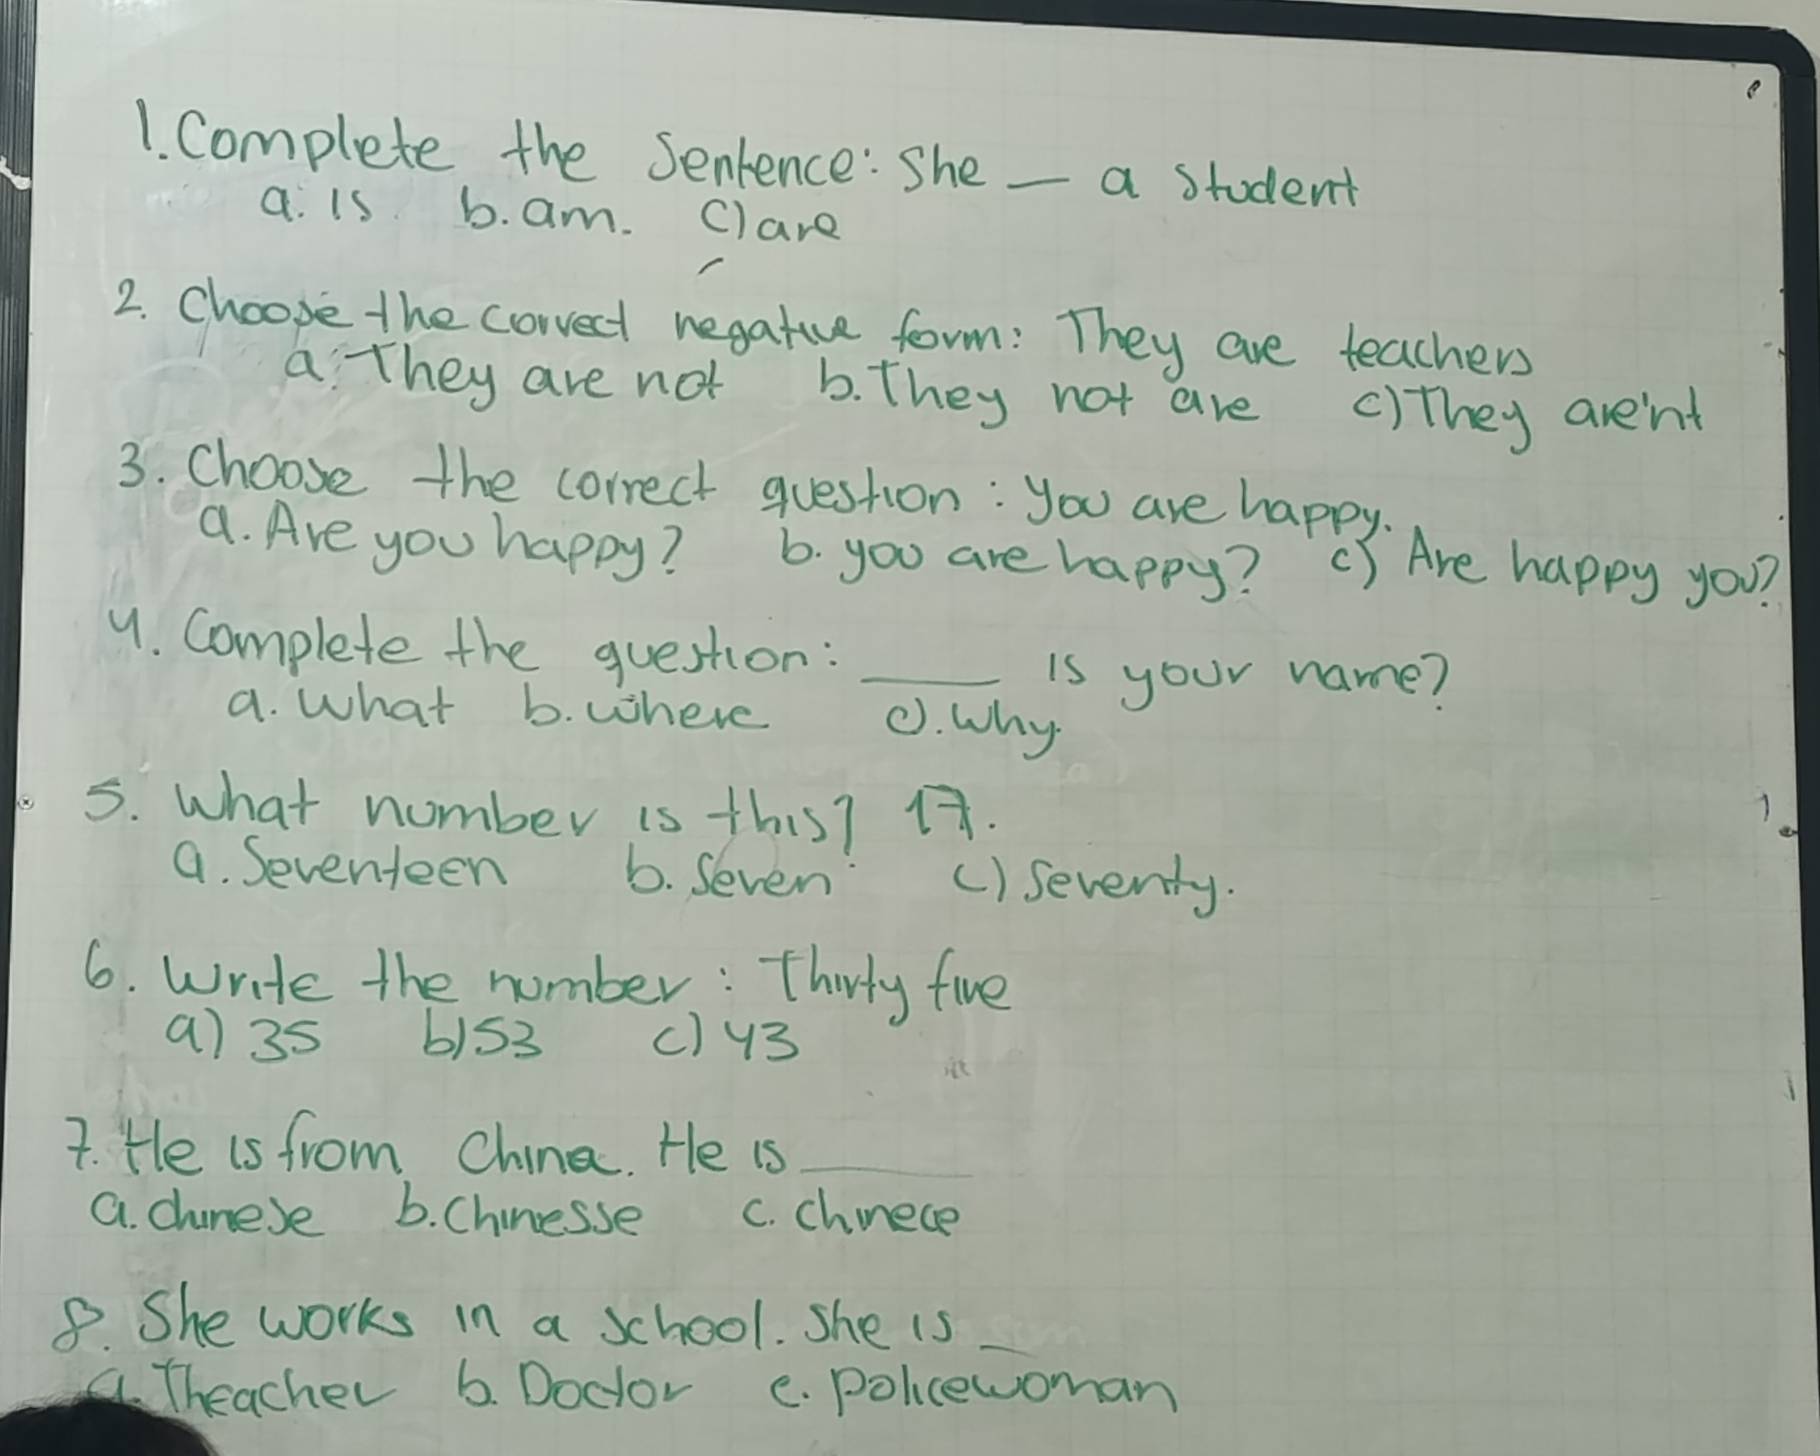 1. Complete the sentence: she _ a student
a. is b. am. c) are
2. Choose the correct negative form: They are teachers
a. They are not b. They not are c) They are'nt
3. Choose the correct question: you are happy.
a. Are you happy? b. you are happy? c) Are happy you?
4. Complete the question: ____ is your name?
a. what b. where c). why.
5. What number is this? 17.
a. Seventeen b. Seven c) seventy.
6. Write the number: Thirty five
a) 35 b) 53 c) 43
7. He is from China. He is ____
a. chinese b. Chinesse c. chinece
8. She works in a school. she is _
a. Theacher b. Doctor c. policewoman